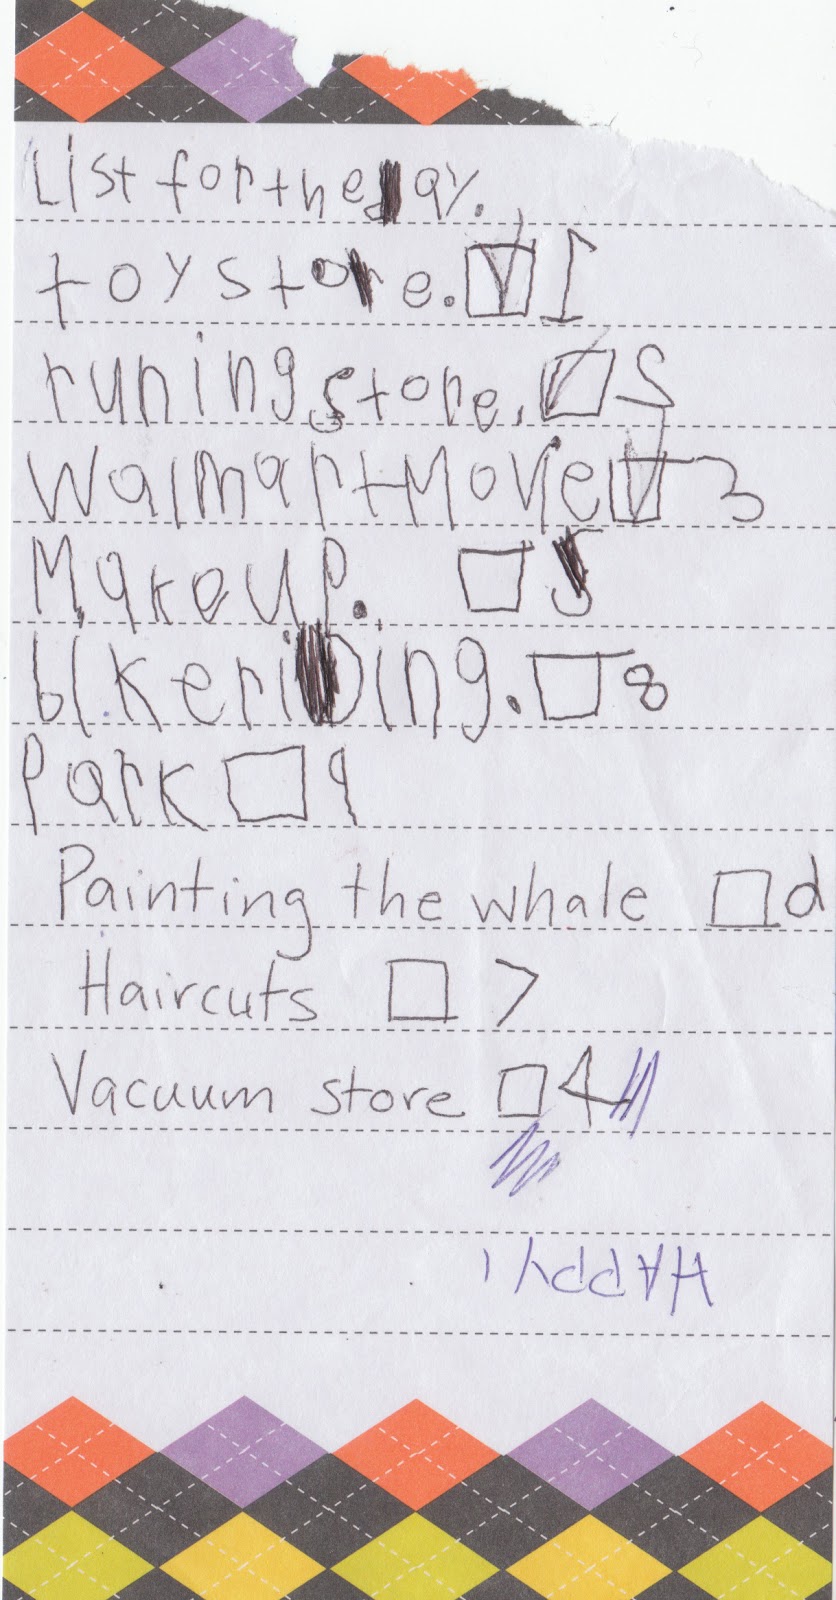 List for the day.
toy store. 1
runing store. 2
Walmart Movie 3
Makeup. 5
bike riding. 8
Park 9
Painting the whale 6
Haircuts 7
Vacuum store 4
HAPPY